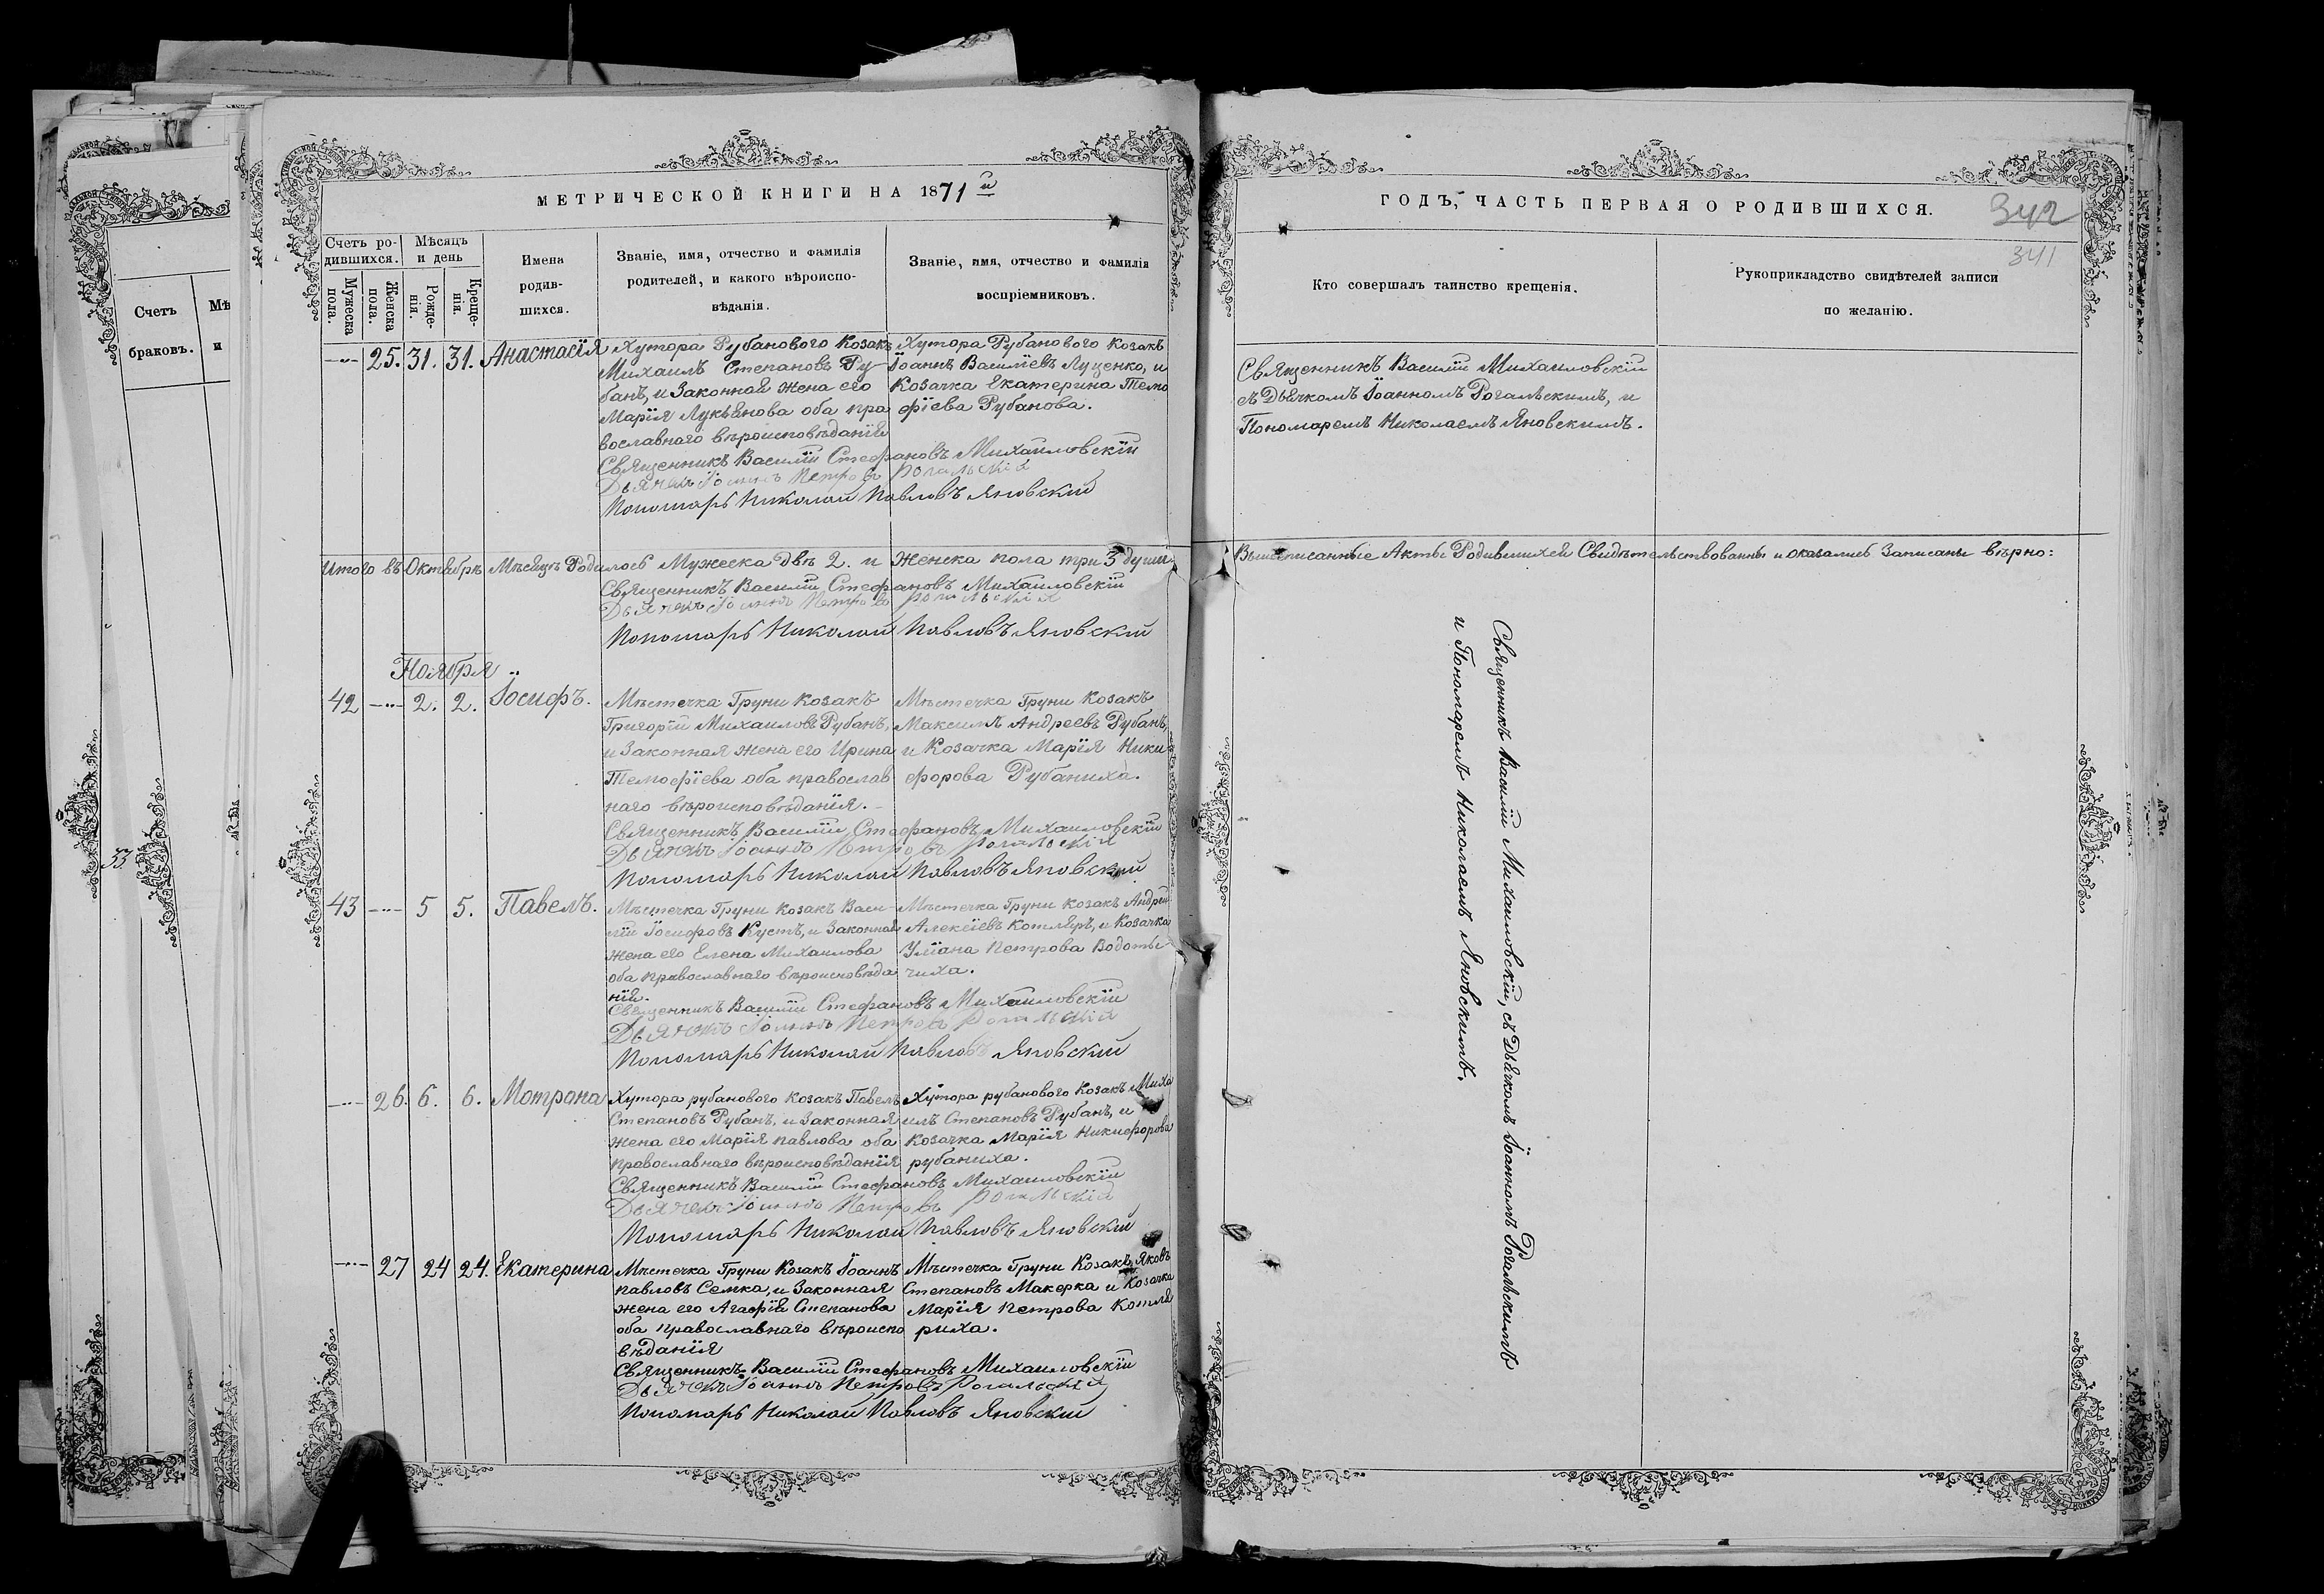 МЕТРИЧЕСКОЙ КНИГИ НА 1871й
Счетъ ро-
дившихся.
Мѣсяцъ
и день
Мужеска
пола.
Женска
пола.
Рожде-
нія.
Креще-
нія.
Имена
родив-
шихся.
Званіе, имя, отчество и фамилія
родителей, и какого вѣроиспо-
вѣданія.
Званіе, имя, отчество и фамилія
воспріемниковъ.
-"- 25. 31. 31. Анастасія
Хутора Рубанового Козакъ
Михаилъ Степановъ Ру-
банъ, и Законная жена его
Марія Лукьянова оба пра
вославнаго вѣроисповѣданія
Хутора Рубанового Козакъ
Іоаннъ Василіевъ Луценко, и
Козачка Екатерина Темо
фіева Рубанова.
Священникъ Василій Стефановъ Михаиловскій
Дьячекъ Іоаннъ Петровъ Рогальскій
Пономарь Николай Павловъ Яновскій
Итого въ Октябрѣ Мѣсяцѣ Родилось Мужеска Двѣ 2. и Женска пола три 3 души
Священникъ Василій Стефановъ Михаиловскій
Дьячекъ Іоаннъ Петровъ Рогальскій
Пономарь Николай Павловъ Яновскій
Ноября
42 -"- 2. 2. Іосифъ.
Мѣстечка Груни Козакъ
Григорій Михаиловъ Рубанъ,
и Законная жена его Ирина
Темофіева оба православ
наго вѣроисповѣданія.-
Мѣстечка Груни Козакъ
Максимъ Андреевъ Рубанъ,
и Козачка Марія Ники
форова Рубаниха.
Священникъ Василій Стефановъ Михаиловскій
Дьячекъ Іоаннъ Петровъ Рогальскій
Пономарь Николай Павловъ Яновскій
43 -"- 5 5. Павелъ.
Мѣстечка Груни Козакъ Васи-
лій Іосифовъ Кустъ, и Законная
жена его Елена Михаилова
оба православнаго вѣроисповѣда
нія.
Мѣстечка Груни Козакъ Андрей
Алексіевъ Котляръ, и Козачка
Уліана Петрова Водоты-
чиха.
Священникъ Василій Стефановъ Михаиловскій
Дьячекъ Іоаннъ Петровъ Рогальскій
Пономарь Николай Павловъ Яновскій
-"- 26. 6. 6. Мотрона
Хутора рубанового Козакъ Павелъ
Степановъ Рубанъ, и Законная
жена его Марія Павлова оба
православнаго вѣроисповѣданія
Хутора рубанового Козакъ Миха
илъ Степановъ Рубанъ, и
Козачка Марія Никифорова
рубаниха.
Священникъ Василій Стефановъ Михаиловскій
Дьячекъ Іоаннъ Петровъ Рогальскій
Пономарь Николай Павловъ Яновскій
-"- 27 24 24. Екатерина
Мѣстечка Груни Козакъ Іоаннъ
Павловъ Семка, и Законная
жена его Агафія Степанова
оба православнаго вѣроиспо
вѣданія
Мѣстечка Груни Козакъ Яковъ
Степановъ Макерка и Козачка
Марія Петрова Котля
риха.
Священникъ Василій Стефановъ Михаиловскій
Дьячекъ Іоаннъ Петровъ Рогальскій
Пономарь Николай Павловъ Яновскій
ГОДЪ, ЧАСТЬ ПЕРВАЯ О РОДИВШИХСЯ.
342
341
Кто совершалъ таинство крещенія.
Рукоприкладство свидѣтелей записи
по желанію.
Священникъ Василій Михаиловскій
съ Дьячкомъ Іоанномъ Рогальскимъ, и
Пономаремъ Николаемъ Яновскимъ.
Вышеписанные Акты Родившихся Свидѣтельствованны и оказались Записаны вѣрно:
Священникъ Василій Михаиловскій, съ Дьячкомъ Іоанномъ Рогальскимъ
и Пономаремъ Николаемъ Яновскимъ.
Счетъ
браковъ.
Мѣ
и
33